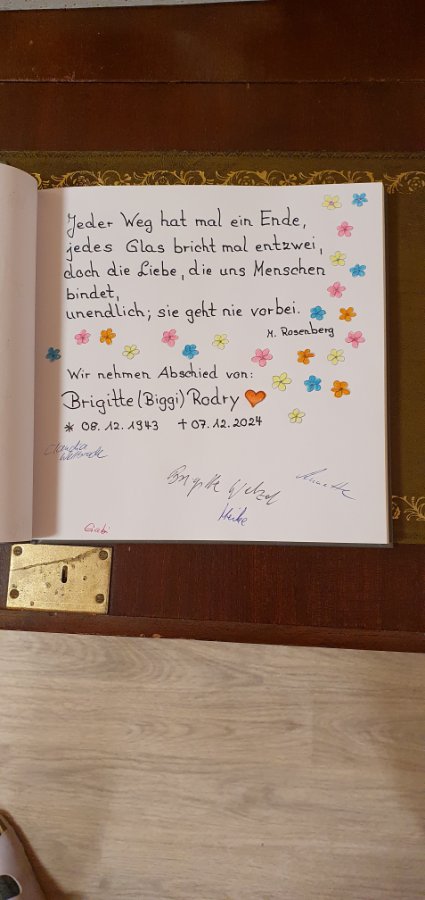 Jeder Weg hat mal ein Ende,
jedes Glas bricht mal entzwei,
doch die Liebe, die uns Menschen
bindet,
unendlich; sie geht nie vorbei.
M. Rosenberg
Wir nehmen Abschied von:
Brigitte (Biggi) Rodry
* 08.12.1943 † 07.12.2024
Claudia
Brigitte
Annette
Heike
Gabi